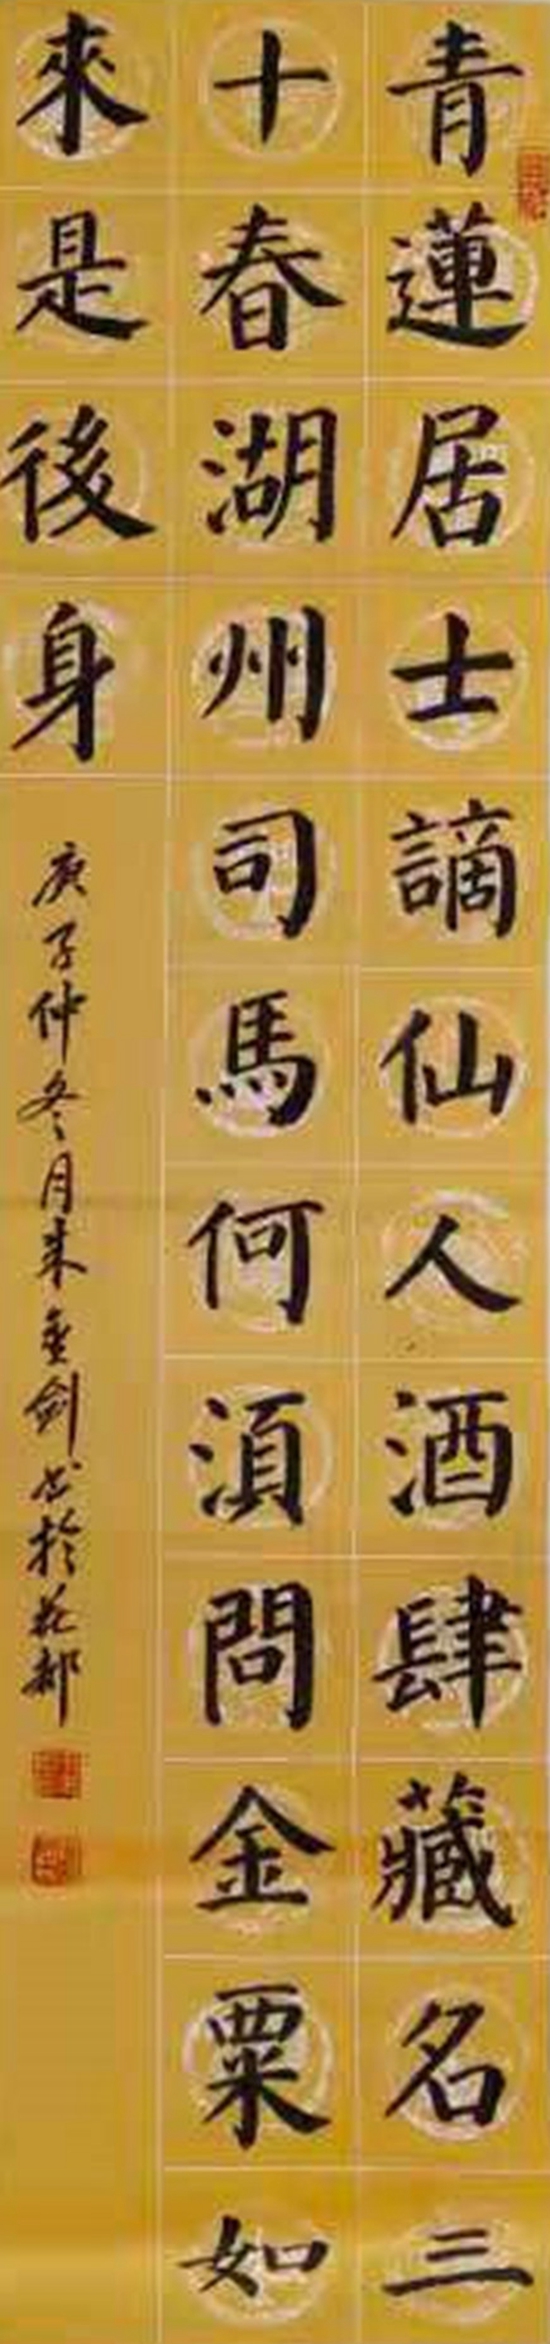 青蓮居士謫仙人酒肆藏名三
十春湖州司馬何湏問金粟如
來是後身
庚子仲冬月朱金劍書於花都